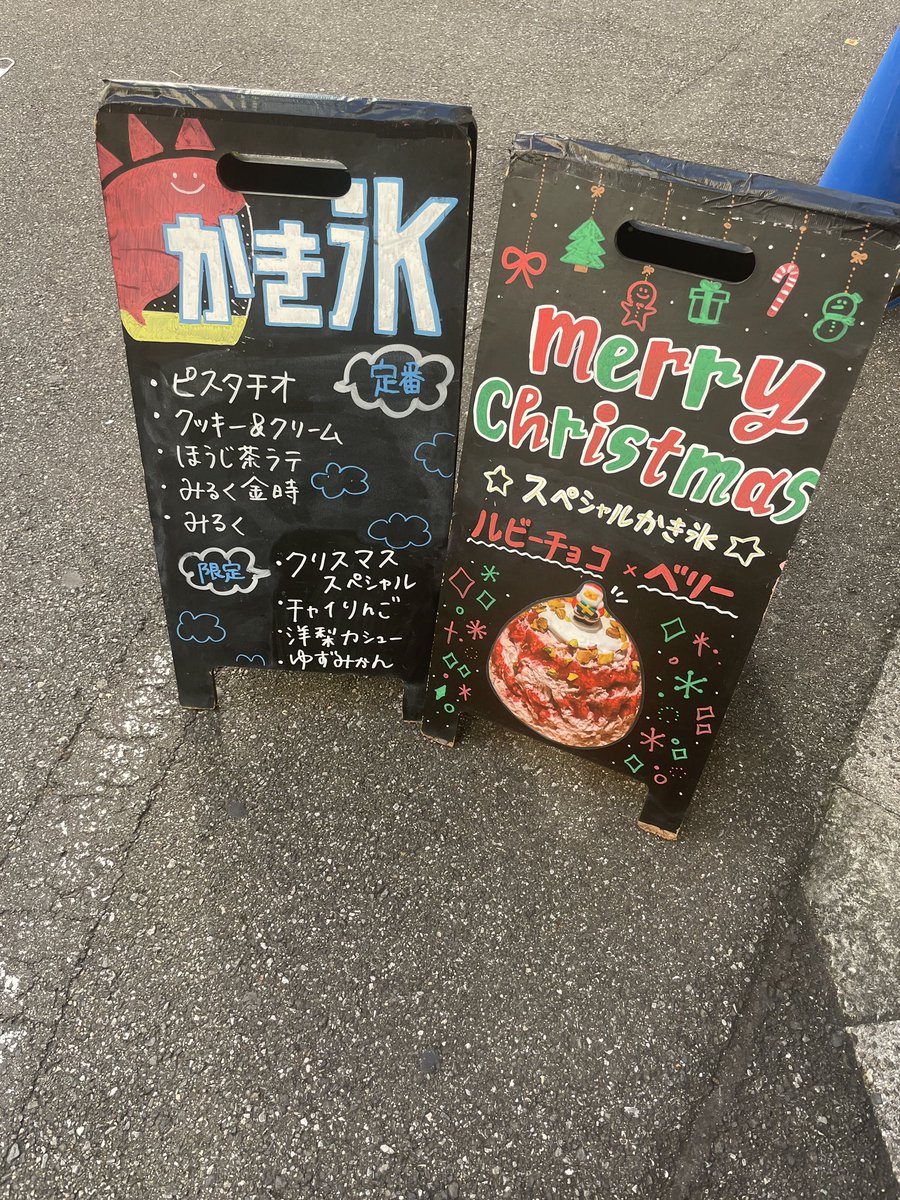 かき氷
定番
・ピスタチオ
・クッキー&クリーム
・ほうじ茶ラテ
・みるく金時
・みるく
限定
・クリスマス
スペシャル
・チャイりんご
・洋梨カシュー
・ゆずみかん
merry
Christmas
☆スペシャルかき氷☆
ルビーチョコ×ベリー